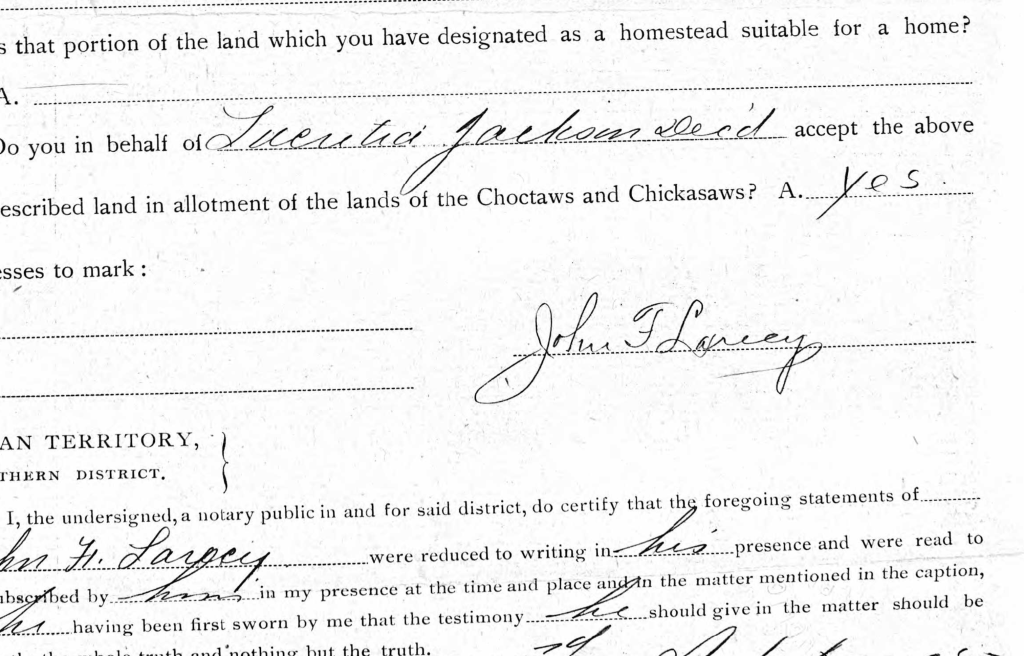 s that portion of the land which you have designated as a homestead suitable for a home?
A.
Do you in behalf of Lucretia Jackson Dec'd accept the above
escribed land in allotment of the lands of the Choctaws and Chickasaws? A. Yes.
esses to mark:
John F Larcey
AN TERRITORY,
THERN DISTRICT.
I, the undersigned, a notary public in and for said district, do certify that the foregoing statements of
hn F. Larcey were reduced to writing in his presence and were read to
ubscribed by him in my presence at the time and place and in the matter mentioned in the caption,
he having been first sworn by me that the testimony he should give in the matter should be
truth and nothing but the truth.